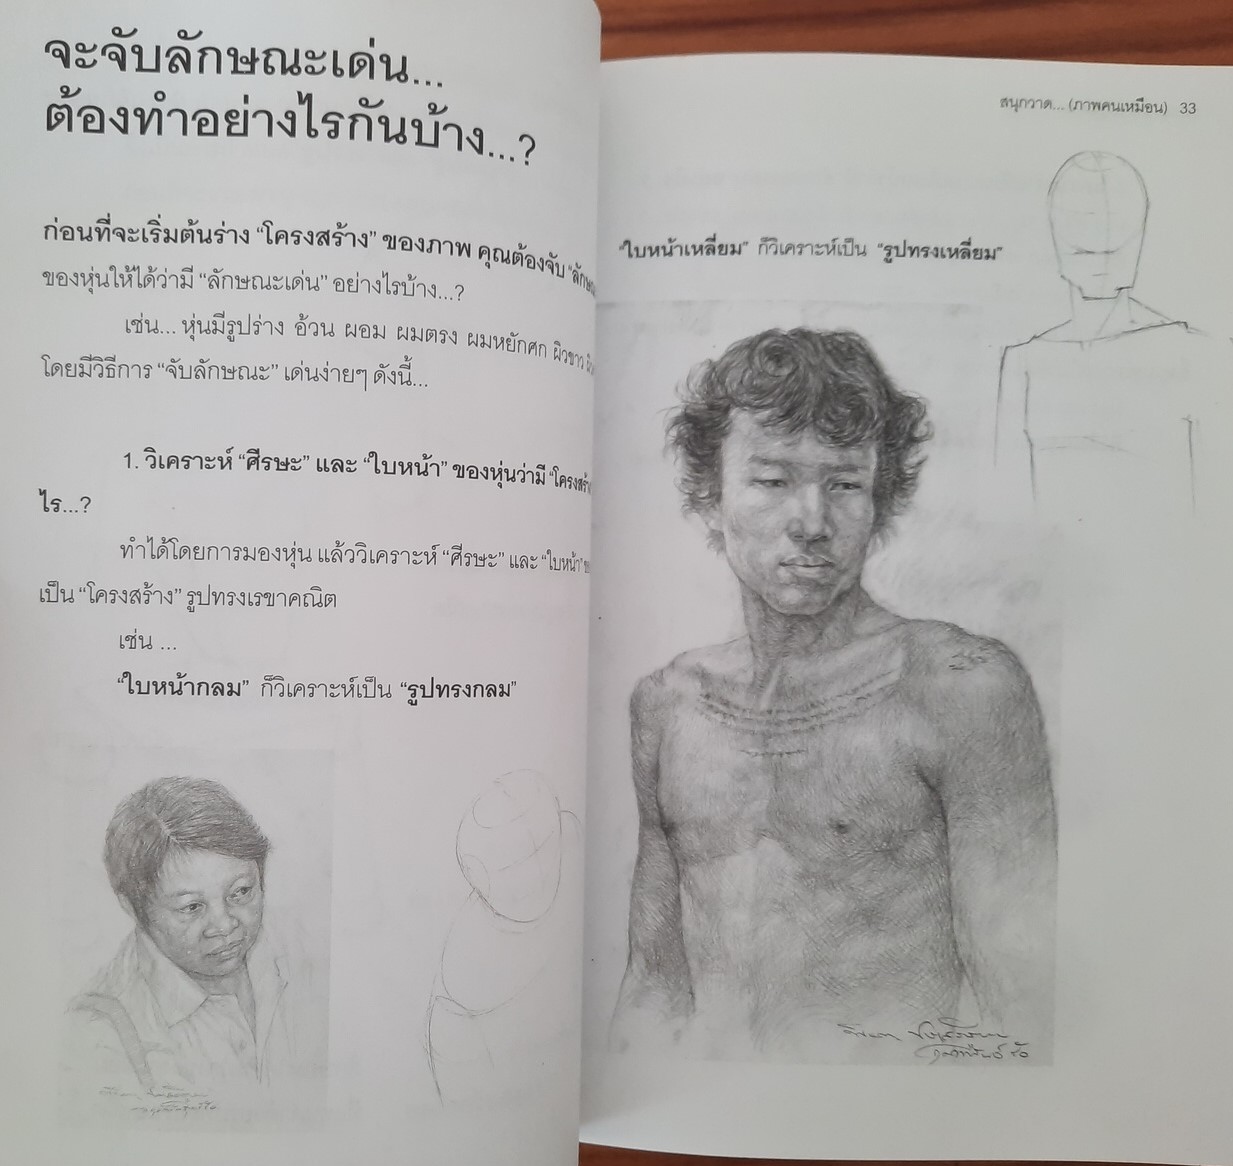 จะจับลักษณะเด่น...
ต้องทำอย่างไรกันบ้าง...?
ก่อนที่จะเริ่มต้นร่าง “โครงสร้าง” ของภาพ คุณต้องจับ “ลักษณะ
ของหุ่นให้ได้ว่ามี “ลักษณะเด่น” อย่างไรบ้าง...?
เช่น... หุ่นมีรูปร่าง อ้วน ผอม ผมตรง ผมหยักศก ผิวขาว
โดยมีวิธีการ “จับลักษณะ” เด่นง่ายๆ ดังนี้...
1. วิเคราะห์ “ศีรษะ” และ “ใบหน้า” ของหุ่นว่ามี “โครงสร้าง
ไร...?
ทำได้โดยการมองหุ่น แล้ววิเคราะห์ “ศีรษะ” และ “ใบหน้า”
เป็น “โครงสร้าง” รูปทรงเรขาคณิต
เช่น ...
“ใบหน้ากลม” ก็วิเคราะห์เป็น “รูปทรงกลม”
สนุกวาด... (ภาพคนเหมือน) 33
“ใบหน้าเหลี่ยม” ก็วิเคราะห์เป็น “รูปทรงเหลี่ยม”